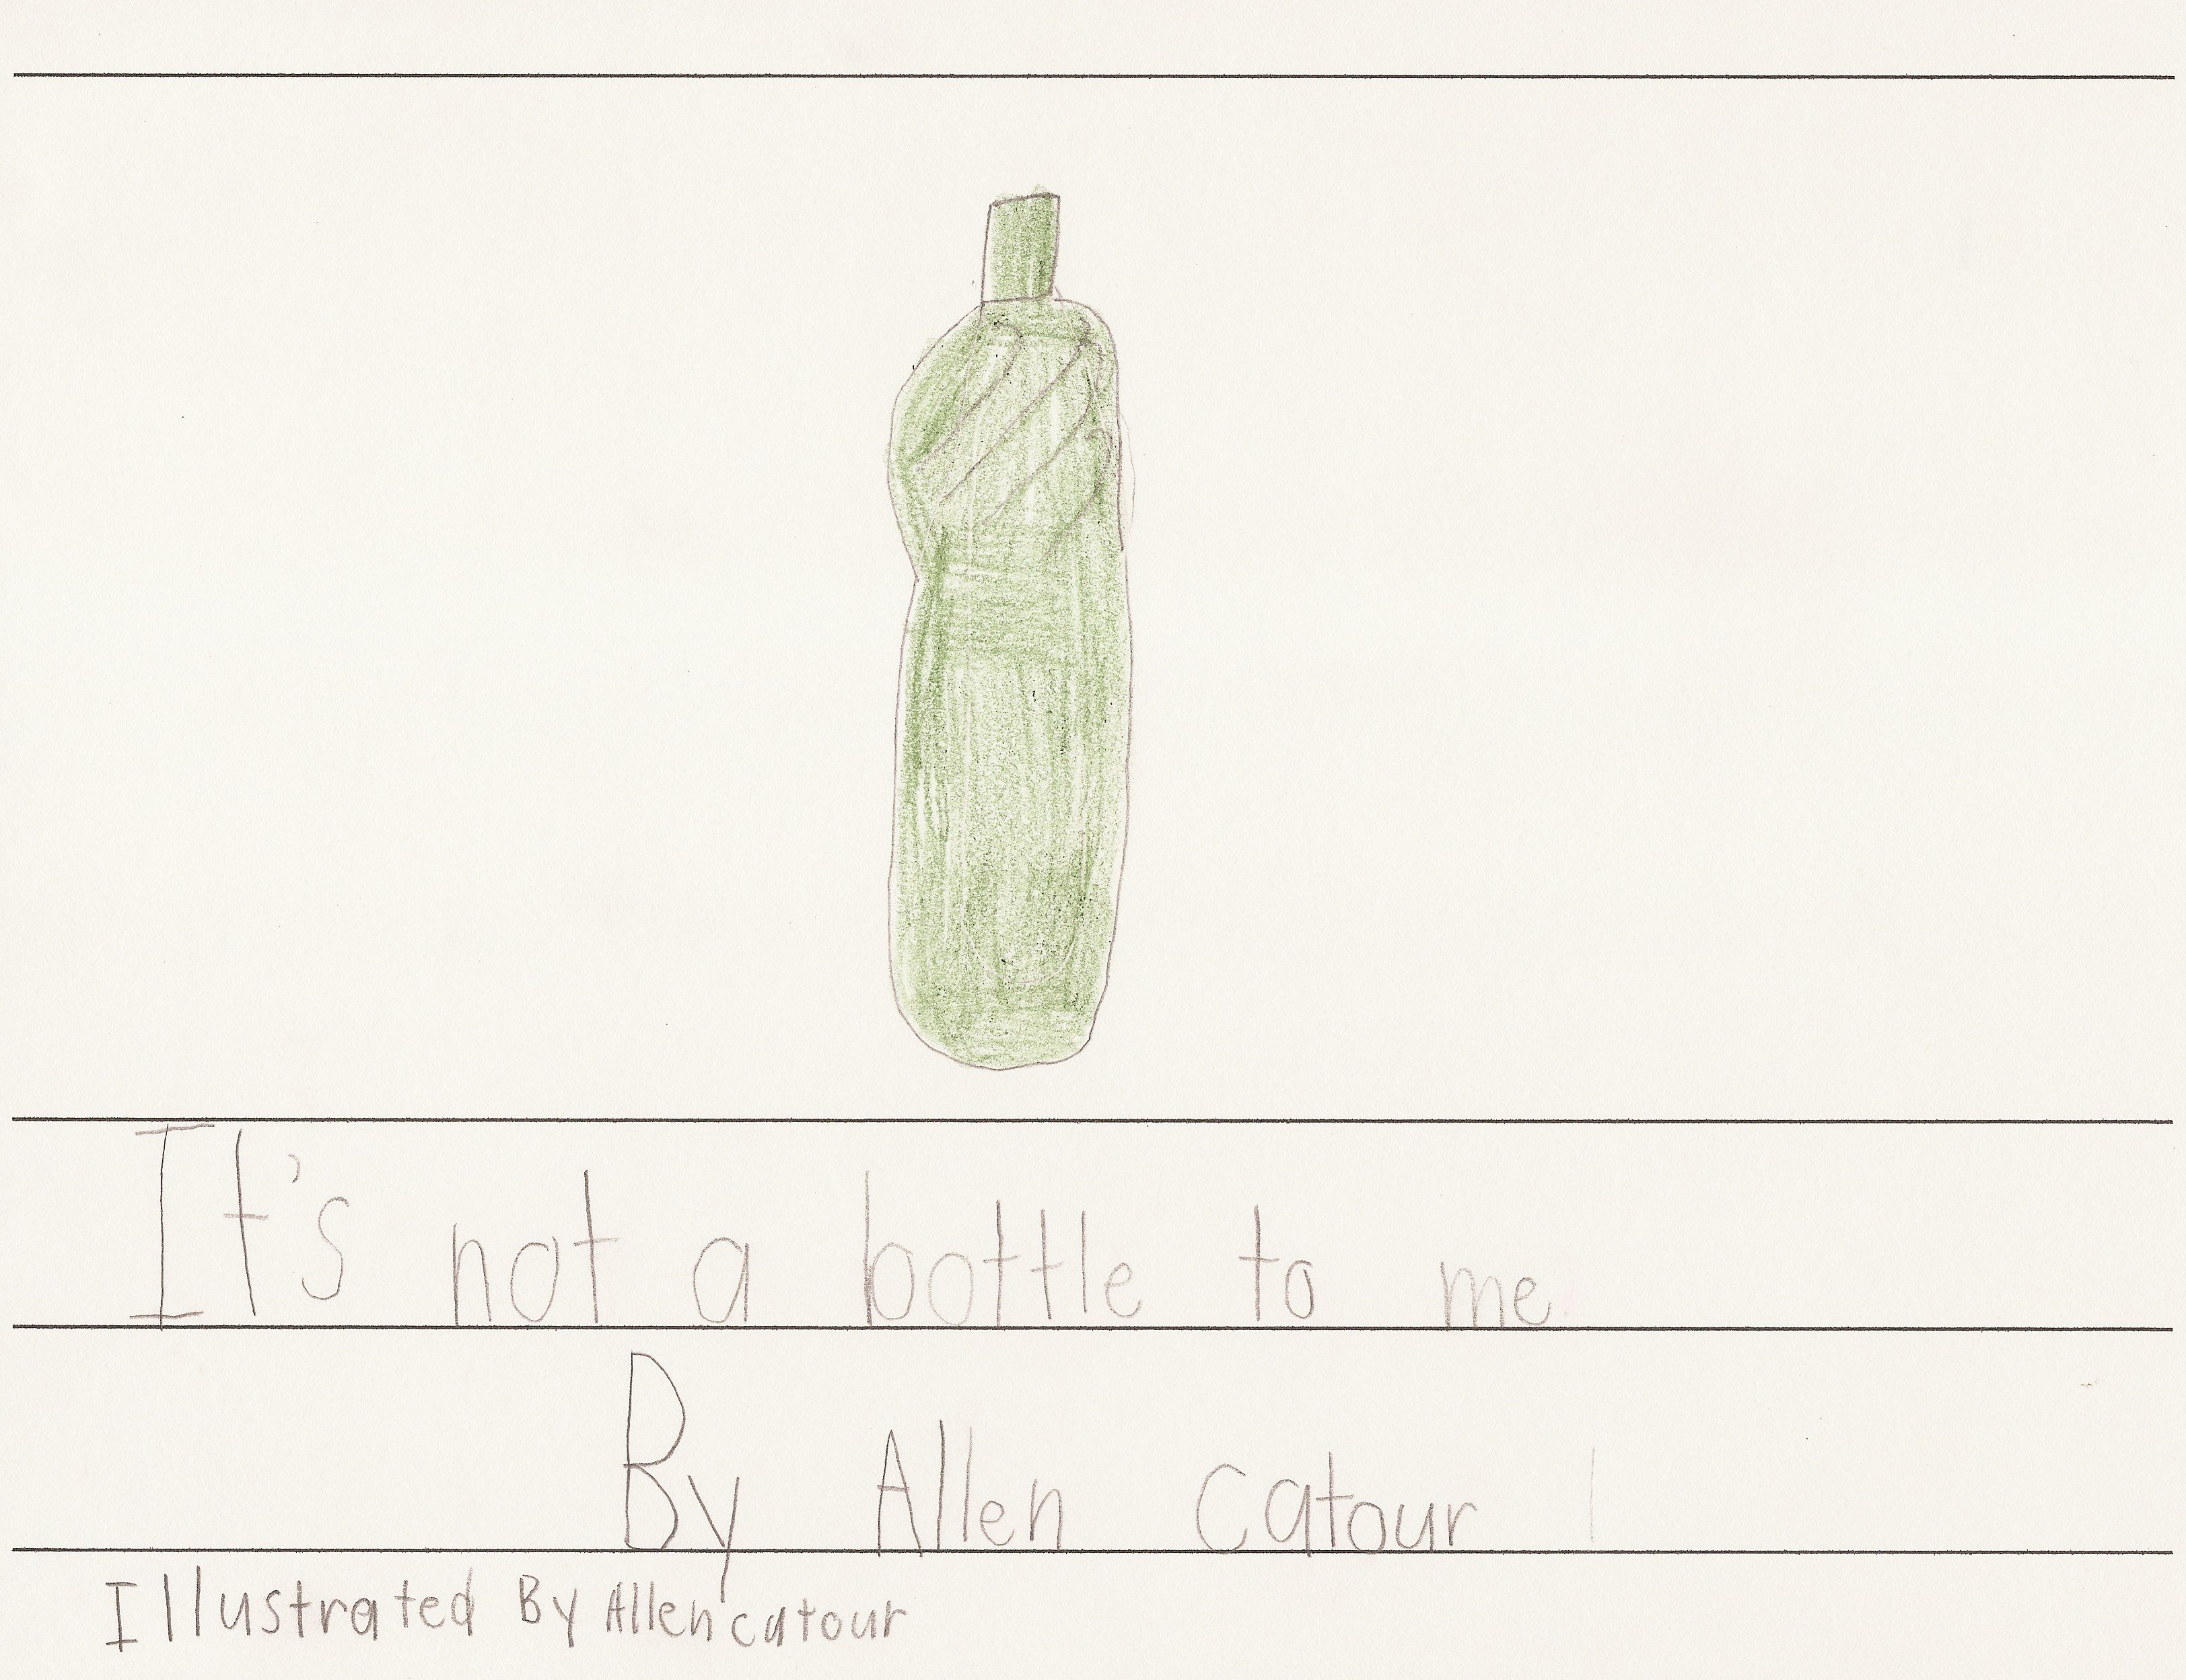 It's not a bottle to me
By Allen catour
Illustrated By Allen catour